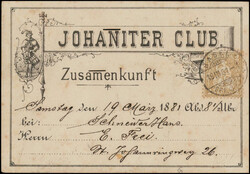 JOHANITER CLUB.
Zusamenkunft
Samstag den 19 März 1881 Abs 8½ Uhr
bei: Schneider Hans.
Herrn E. Frei
St. Johannringweg 26.